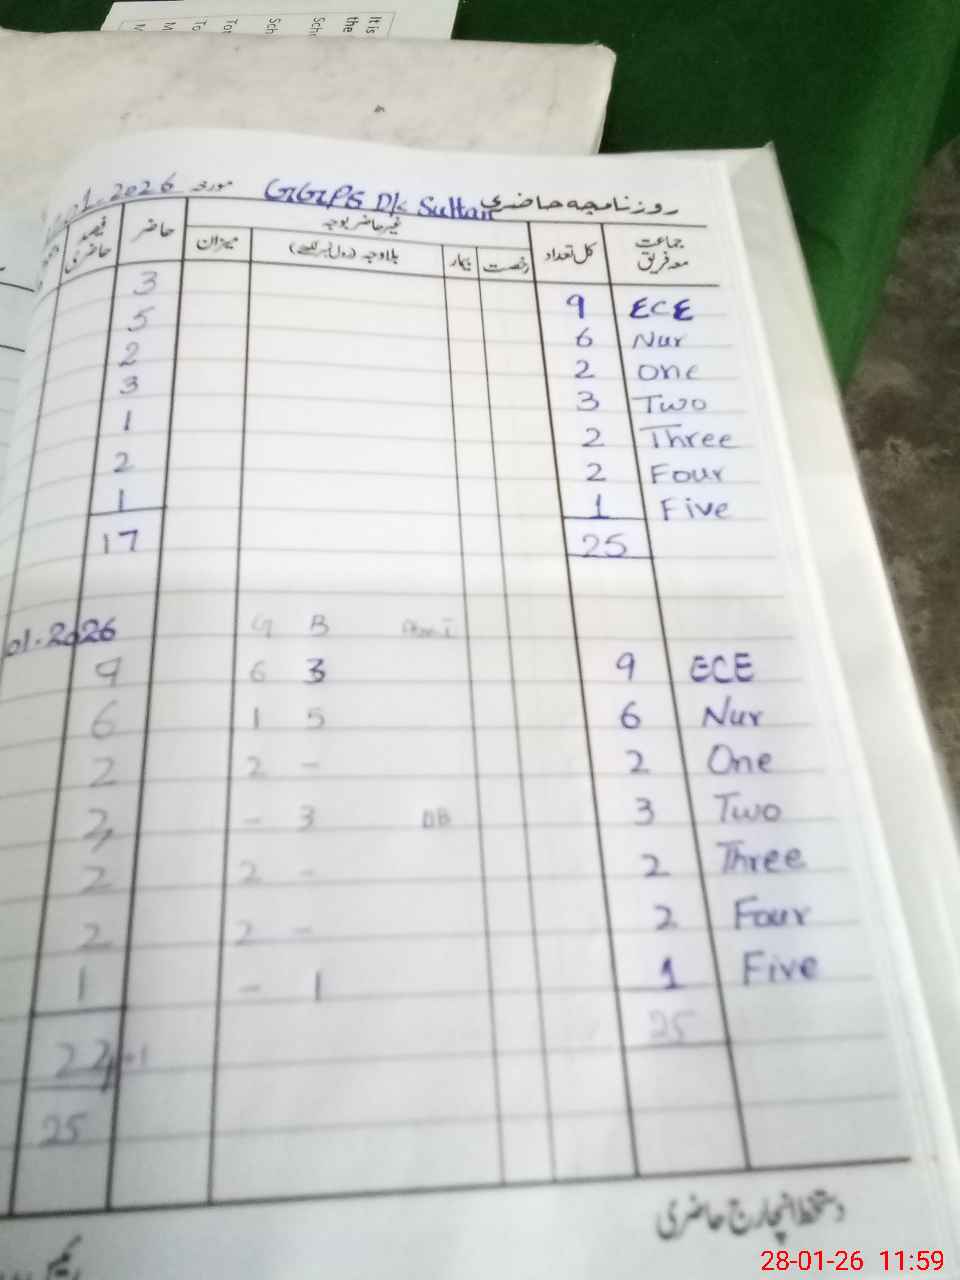 روزنامچہ حاضری GGPS D/K Sultan مورخہ 1.2026
جماعت معہ فریق کل تعداد غیر حاضر بوجہ حاضر فیصد حاضری
رخصت بیمار بلاوجہ میزان
ECE 9 3
Nur 6 5
One 2 2
Two 3 3
Three 2 1
Four 2 2
Five 1 1
25 17
G B 01-2026
ECE 9 3 6 9
Nur 6 5 1 6
One 2 - 2 2
Two 3 3 -
Three 2 - 2 2
Four 2 - 2 2
Five 1 1 - 1
25
25
دستخط انچارج حاضری
28-01-26 11:59